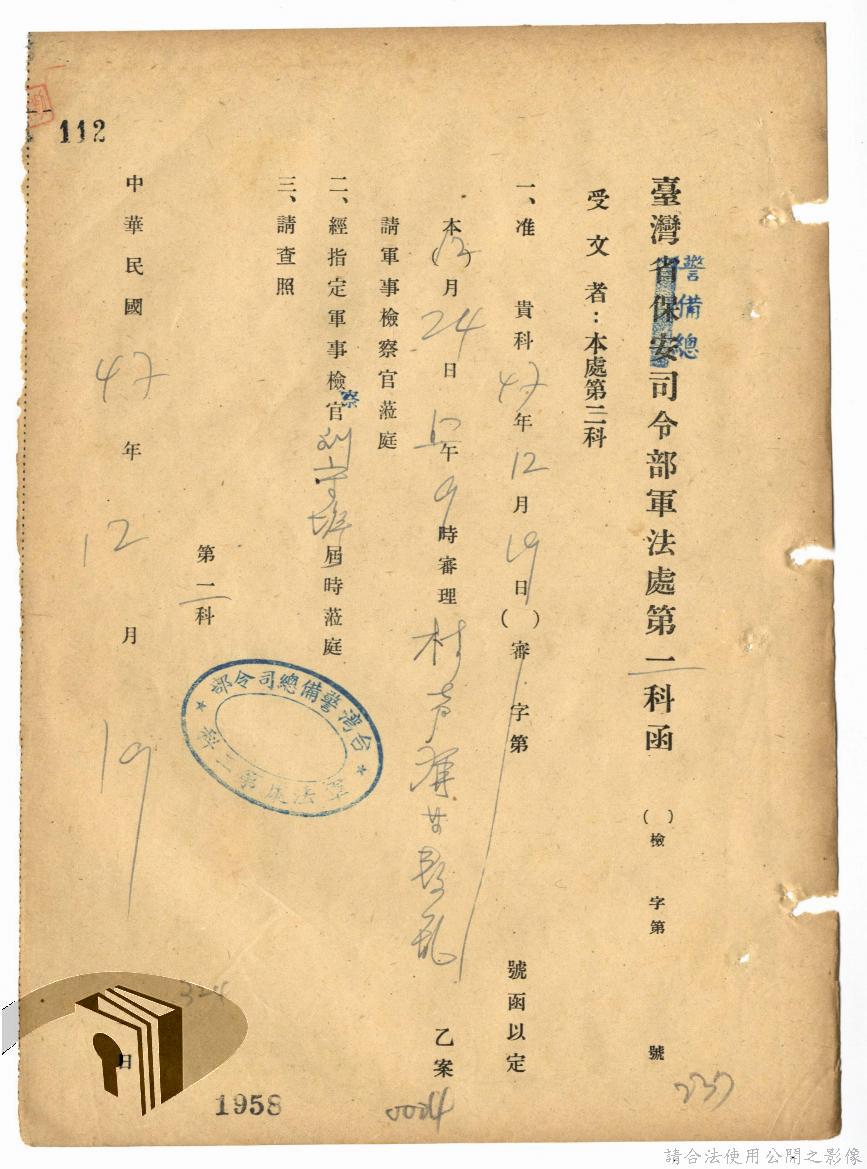 臺灣省保安司令部軍法處第二科函 ( )檢 字第 號
警備總
237
受文者:本處第三科
一、准 貴科47年12月19日( )審 字第 號函以定
本(12)月24日上午9時審理 等叛亂乙案
請軍事檢察官蒞庭
二、經指定軍事檢察官 屆時蒞庭
三、請查照
第二科
台灣警備總司令部
軍法處第二科
中華民國47年12月19日
112
324
1958
0024
請合法使用公開之影像